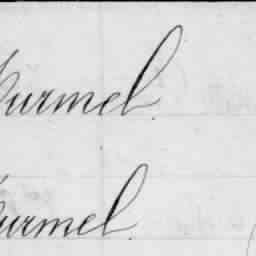 urmel.
urmel.